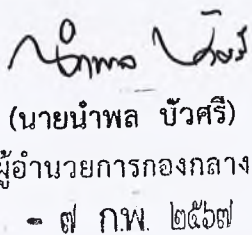 นำพล บัวศรี
(นายนำพล บัวศรี)
ผู้อำนวยการกองกลาง
- ๗ ก.พ. ๒๕๖๗